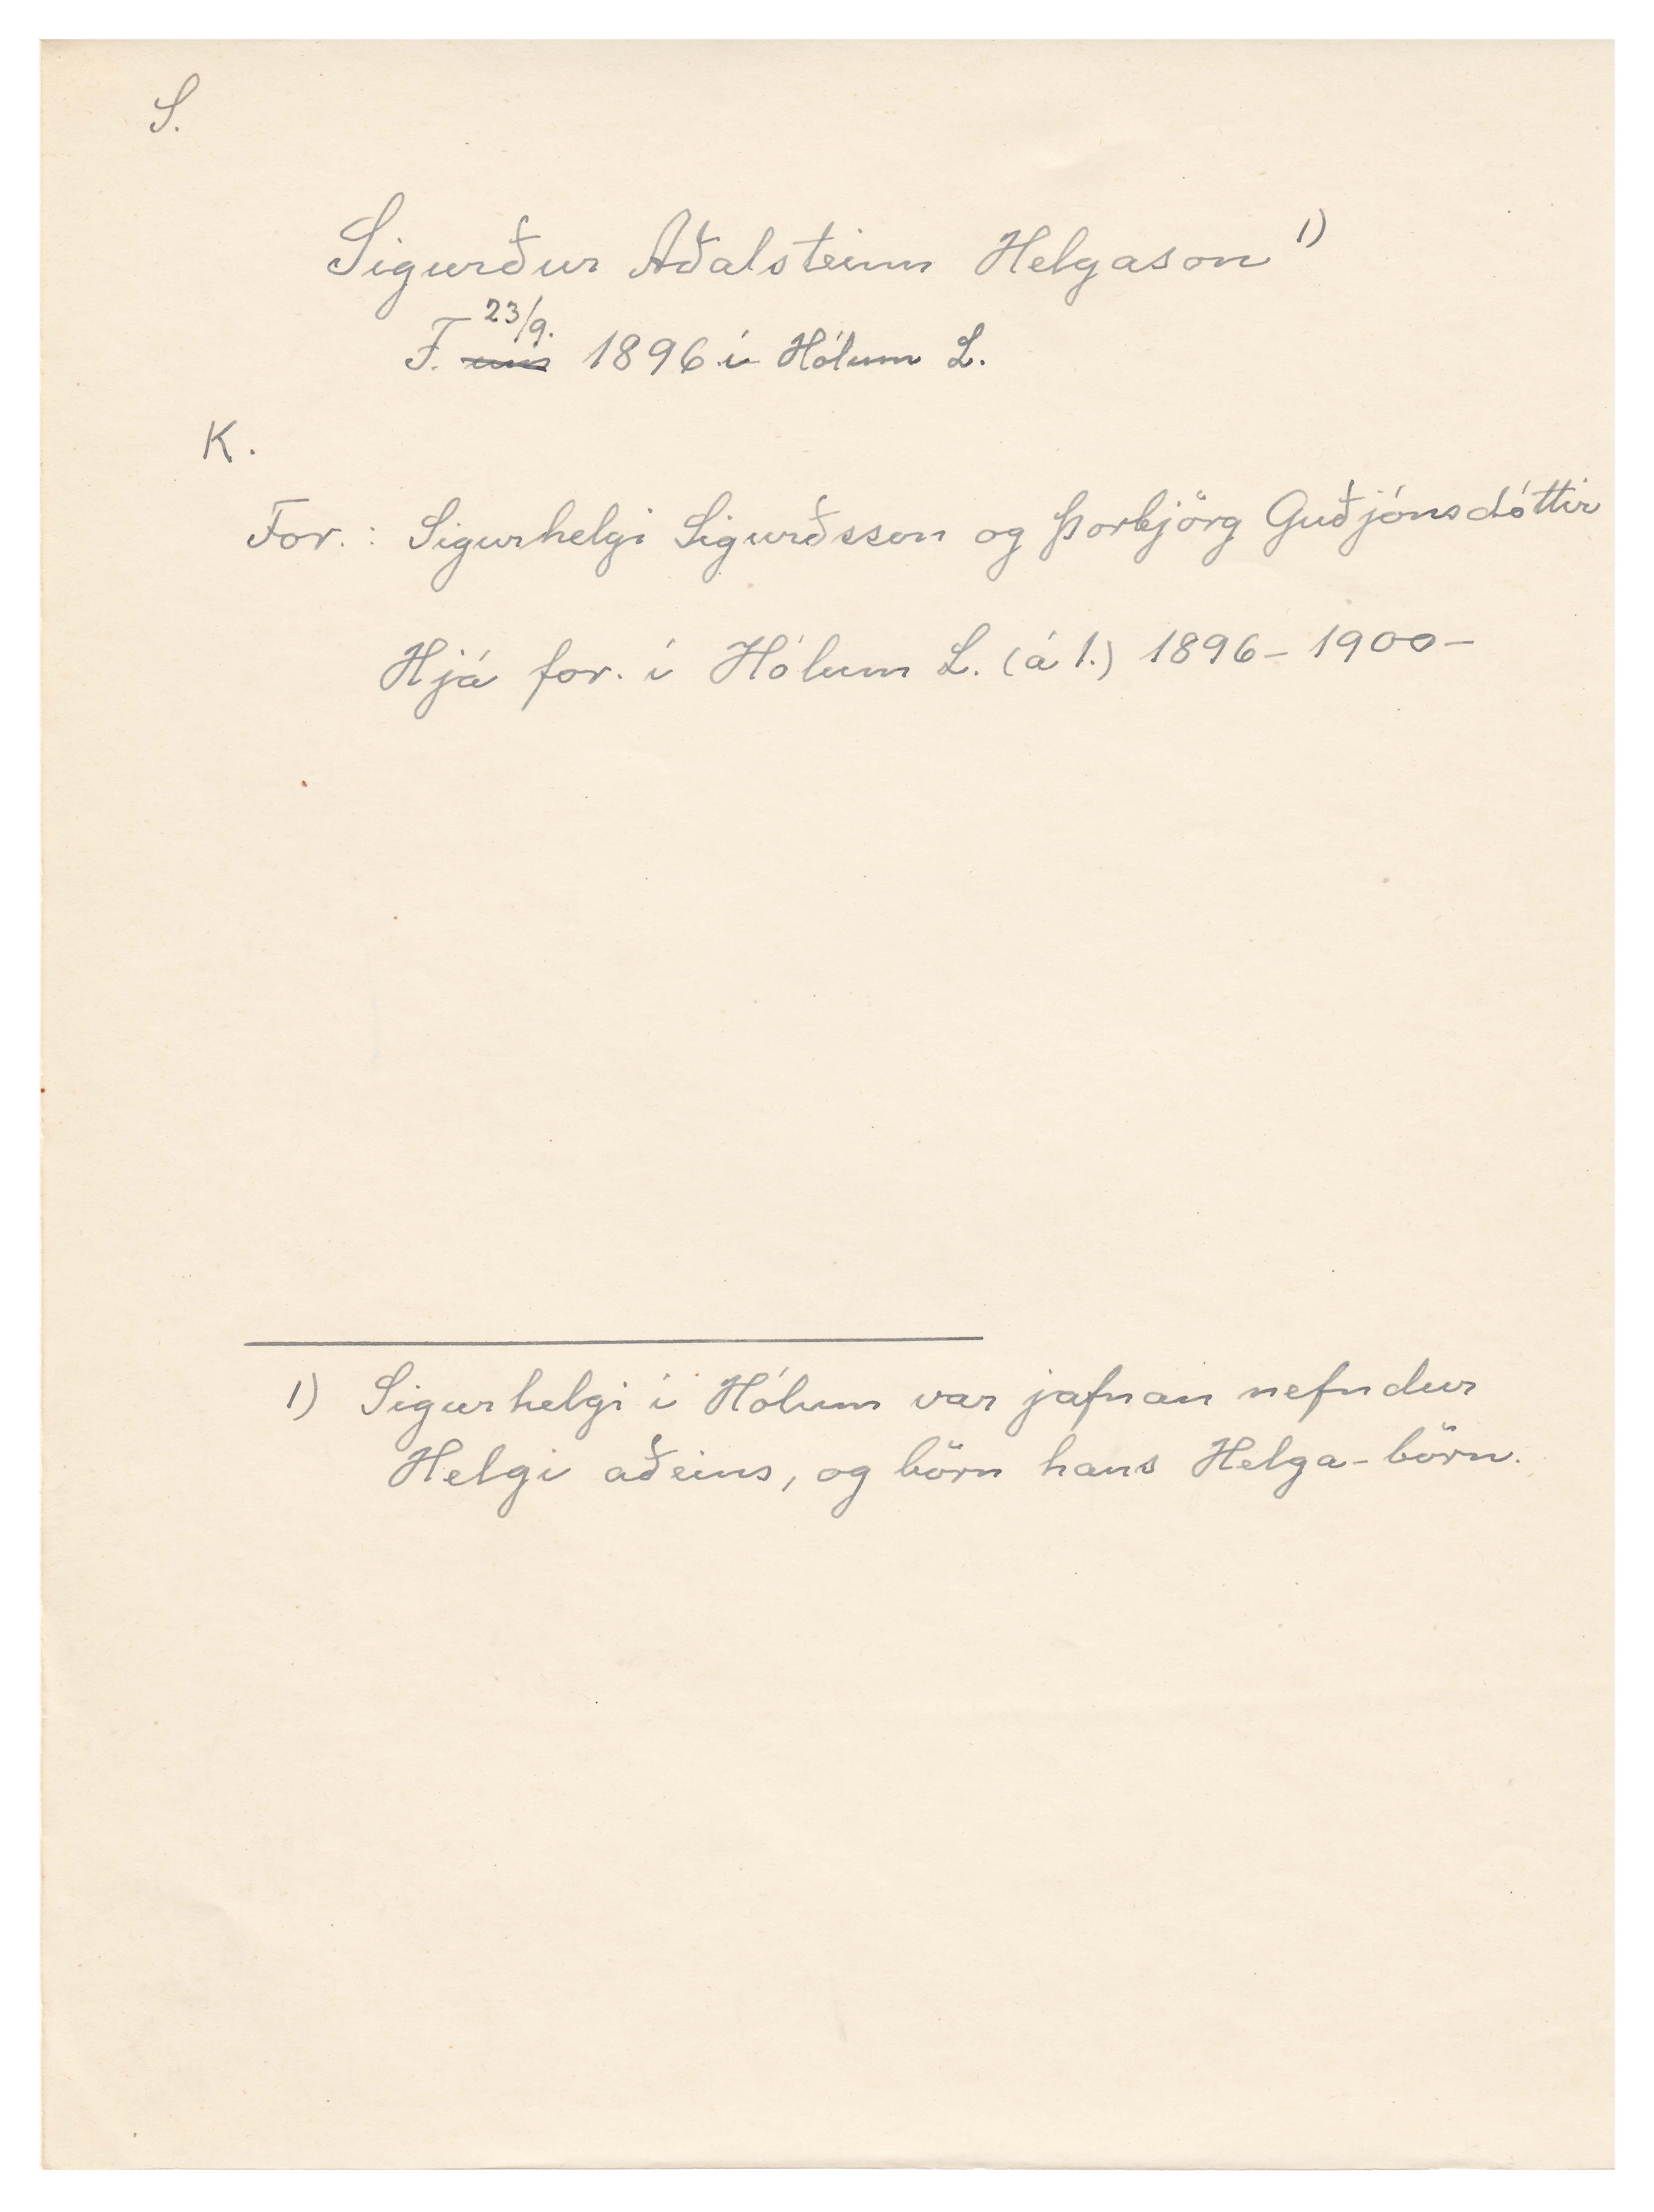 S.
Sigurður Aðalsteinn Helgason 1)
F. 23/9. 1896 í Hólum L.
K.
For.: Sigurhelgi Sigurðsson og Þorbjörg Guðjónsdóttir
Hjá for. í Hólum L. (á 1.) 1896-1900-
1) Sigurhelgi í Hólum var jafnan nefndur
Helgi aðeins, og börn hans Helga-börn.